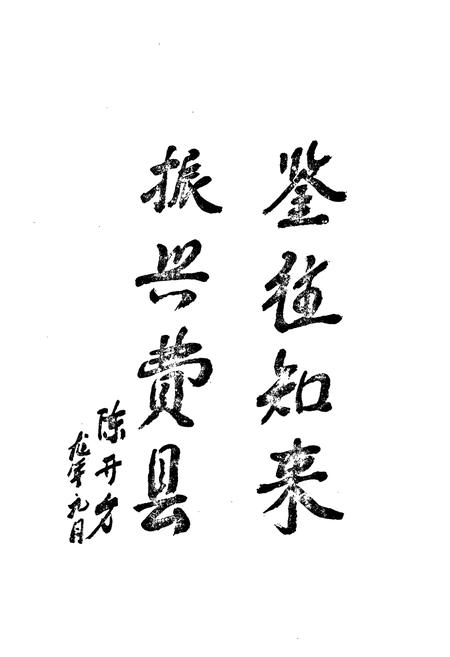 鉴往知来
振兴费县
陈开方
龙年九月